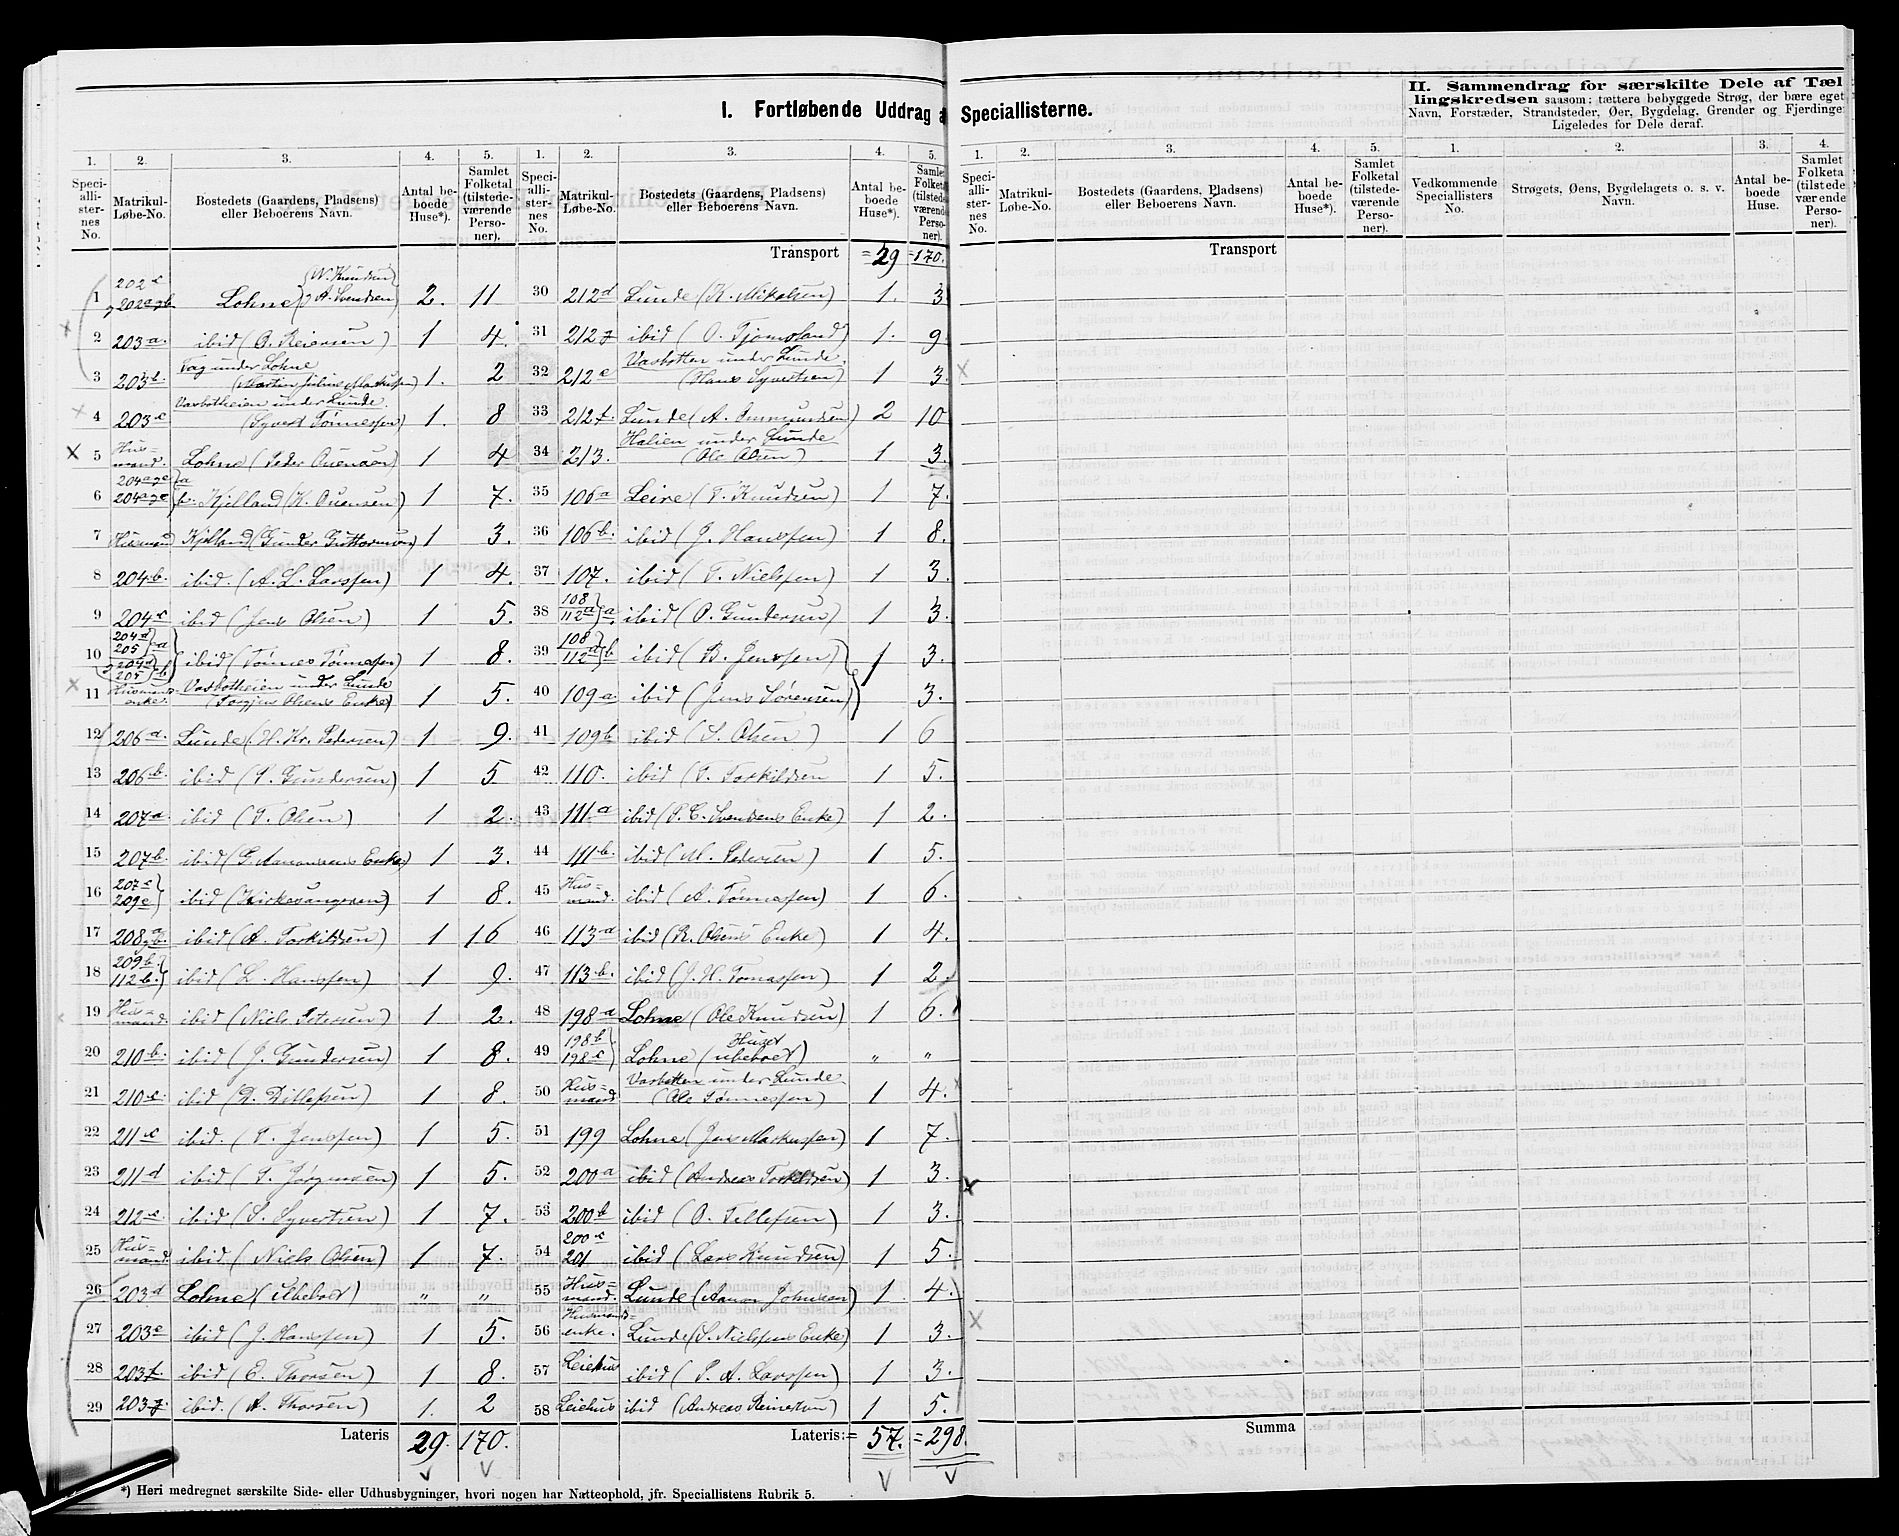 I. Fortløbende Uddrag a Speciallisterne.
II. Sammendrag for særskilte Dele af Tæl
lingskredsen saasom: tættere bebyggede Strøg, der bære eget
Navn, Forstæder, Strandsteder, Øer, Bygdelag, Grender og Fjerdinge
Ligeledes for Dele deraf.
1. 2. 3. 4. 5. 1. 2. 3. 4. 5.
Speciallisternes No. Matrikul-Løbe-No. Bostedets (Gaardens, Pladsens) eller Beboerens Navn. Antal beboede Huse*). Samlet Folketal (tilstedeværende Personer).
1 202c 202a & b Lohne (N. Knudsen, A. Svendsen) 2. 11
2 203a. ibid (O. Reiersen) 1 4.
3 203b. Tag under Lohne (Martin Julius Markussen) 1. 2
4 203c Vasbotheien under Lunde (Syvert Tønnessen) 1. 8
5 Husmand. Lohne (Peder Ouensen) 1 4
6 204a & c a 204a & c b. Kjelland (K. Ouensen) 1 7.
7 Husmand Kjelland (Gunder Guttormsen) 1 3.
8 204b. ibid. (A. L. Larssen) 1 4.
9 204c ibid (Jens Olsen) 1 5.
10 204d 205 a 204d 205 b ibid (Tønnes Tønnessen) 1 8.
11 Husmands enke. Vasbotheien under Lunde (Torgjus Olsens Enke) 1 5.
12 206a. Lunde (H. Kr. Pedersen) 1 9.
13 206b. ibid (P. Gundersen) 1 5
14 207a ibid (T. Olsen) 1 2.
15 207b. ibid (G. Aanonsens Enke) 1 3.
16 207c 209c ibid (Kirkesangeren) 1 8.
17 208a & b. ibid (A. Torkildsen) 1 16
18 209b. 112b. ibid (L. Hanssen) 1 9.
19 Husmand. ibid (Niels Petersen) 1 2.
20 210b. ibid (J. Gundersen) 1 8.
21 210c. ibid (D. Ditlefsen) 1 8.
22 211c ibid. (T. Jenssen) 1 5.
23 211d ibid (T. Jørgensen) 1 5.
24 212c. ibid (S. Syvertsen) 1 7.
25 Husmand ibid (Niels Olsen) 1 7.
26 203d Lohne (Ubeboet) " "
27 203e ibid (J. Hanssen) 1 5.
28 203f. ibid (E. Thorsen) 1 8.
29 203g. ibid. (A. Thorsen) 1. 2
Lateris 29. 170.
Transport = 29 = 170.
30 212d Lunde (K. Mikalsen) 1. 3
31 212g ibid (O. Tjomsland) 1. 9
32 212e Vasbotten under Lunde. (Hans Syvertsen) 1 3.
33 212f. Lunde (A. Ommundsen) 2 10
34 213. Halien under Lunde (Ole Olsen) 1 3.
35 106a Leire (T. Knudsen) 1 7.
36 106b. ibid (J. Hanssen) 1 8.
37 107. ibid (T. Nielsen) 1 3.
38 108 112a a. ibid (O. Gundersen) 1 3.
39 108 112a b ibid (B. Jenssen) 1 3.
40 109a. ibid (Jens Sørensen) 3.
41 109b ibid (S. Olsen) 1 6
42 110. ibid (T. Torkildsen 1 5.
43 111a ibid (P. C. Svendsens Enke) 1 2.
44 111b. ibid (M. Pedersen) 1 5.
45 Husmand. ibid (A. Tønnessen) 1 6.
46 113a ibid (R. Olsens Enke) 1 4.
47 113b. ibid (J. H. Tomassen) 1 2.
48 198a Lohne (Ole Knudsen) 1 6.
49 198b 198c Lohne (Huset ubeboet) " "
50 Husmand Vasbotten under Lunde (Ole Tønnessen) 1 4.
51 199 Lohne (Jens Markussen) 1 7.
52 200a ibid (Andreas Torkildsen) 1 3.
53 200b ibid (O. Tellefsen) 1 3.
54 200c 201 ibid (Lars Knudsen) 1 5.
55 Husmand. Lunde (Aanon Johnsen) 1. 4.
56 Husmandenke. Lunde (S. Nielsens Enke) 1 3.
57 Leiehus ibid (P. A. Larssen) 1 3.
58 Leiehus ibid (Andreas Reinertsen) 1 5.
Lateris: = 57. = 298.
1. 2. 3. 4. 5. 1. 2. 3. 4.
Speciallisternes No. Matrikul-Løbe-No. Bostedets (Gaardens, Pladsens) eller Beboerens Navn. Antal beboede Huse*). Samlet Folketal (tilstedeværende Personer).
Vedkommende Speciallisters No. Strøgets, Øens, Bygdelagets o. s. v. Navn. Antal beboede Huse. Samlet Folketa (tilstede værende Personer).
Transport
Summa
*) Heri medregnet særskilte Side- eller Udhusbygninger, hvori nogen har Natteophold, jfr. Speciallistens Rubrik 5.